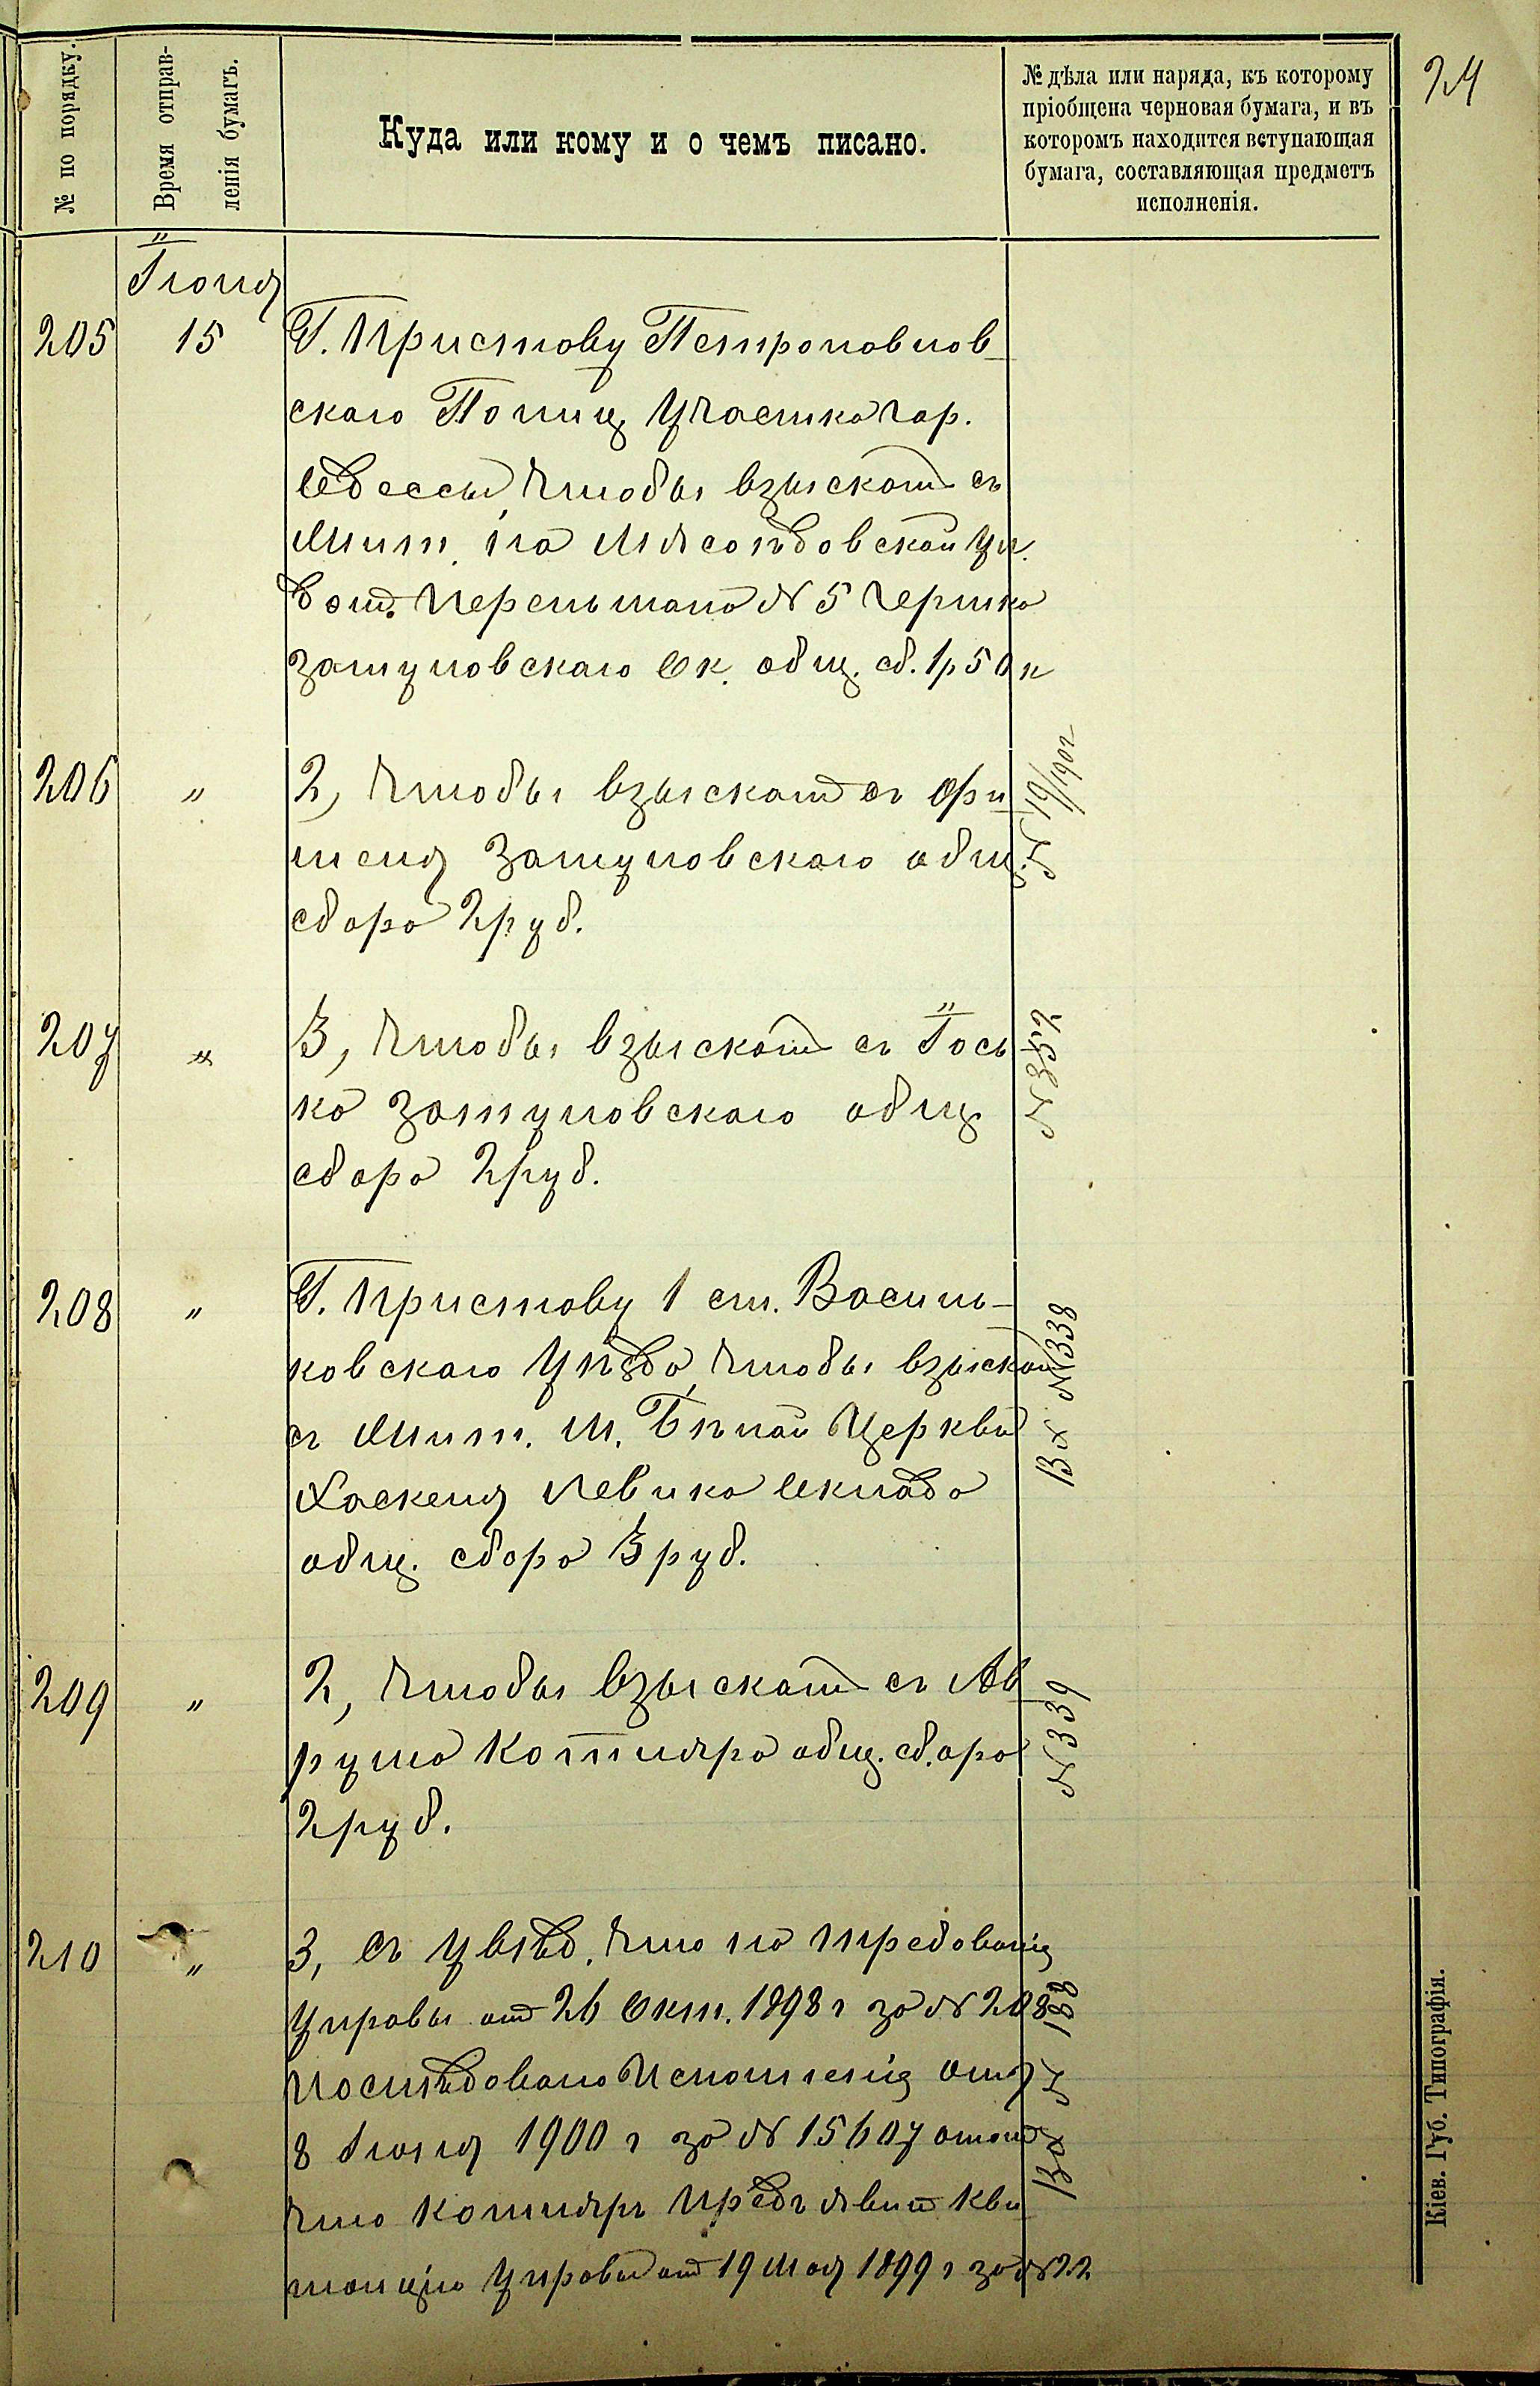 24
№ по порядку.
Время отправ-
ленія бумагъ.
Куда или кому и о чемъ писано.
№ дѣла или наряда, къ которому
пріобщена черновая бумага, и въ
которомъ находится вступающая
бумага, составляющая предметъ
исполненія.
Іюня
205 15 Г. Приставу Петропавлов
скаго Полиц. Участка гор.
Одессы, чтобы взыскать съ
жит. по Мясоѣдовской ул.
в дом. № 5 Гершка
Затуловскаго Ок. общ. сб. 1 р 50 к
206 " 2, чтобы взыскать съ Фи
шеля Затуловскаго общ.
сбора 2 руб.
№ 19/1902
207 " 3, чтобы взыскать съ Іось
ка Затуловскаго общ
сбора 2 руб.
№ 352
208 " Г. Приставу 1 ст. Василь-
ковскаго Уѣзда, чтобы взыскать
съ жит. м. Бѣлой Церкви
Хаскеля Левика Оклада
общ. сбора 3 руб.
Вх № 338
209 " 2, чтобы взыскать съ Ав
рума Котляра общ. сбора
2 руб.
№ 339
210 " 3, съ увѣд. что по требованію
Управы отъ 26 Окт. 1898 г за № 208
послѣдовало Исполненіе отъ
8 Іюля 1900 г за № 15607
что Котляръ предъявилъ кви
танцію Управы отъ 19 Мая 1899 г за № 22
Вх № 188
Кіев. Губ. Типографія.